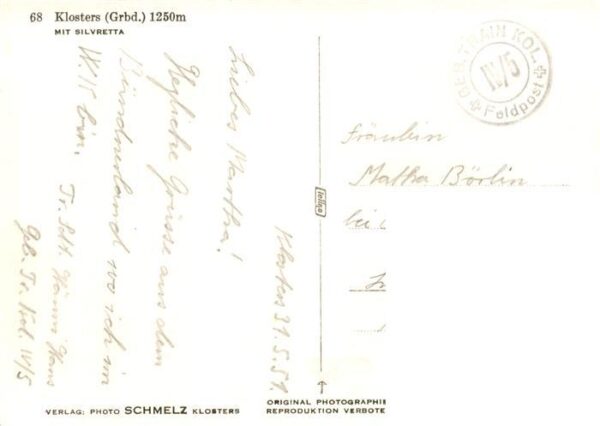 68 Klosters (Grbd.) 1250m
MIT SILVRETTA
Klosters 31.5.51.
Liebes Martha!
Herzliche Grüsse aus dem
Bündnerland wo ich im
W.K. bin.
Tr. Sdt. Hans
Geb. Tr. Kol. IV/5
GEB. TRAIN KOL.
IV/5
Feldpost
Fräulein
Martha Börlin
bei
VERLAG: PHOTO SCHMELZ KLOSTERS
ORIGINAL PHOTOGRAPHIE
REPRODUKTION VERBOTE